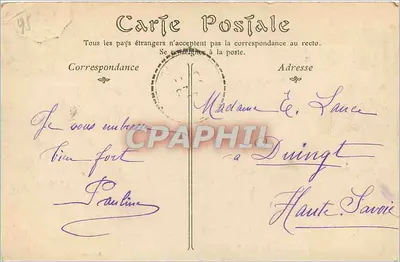 95
Carte Postale
Tous les pays étrangers n'acceptent pas la correspondance au recto.
Se renseigner à la poste.
Correspondance
Adresse
Je vous embrasse
bien fort
Pauline
Madame E. Lance
à Duingt
Haute-Savoie
CPAPHIL